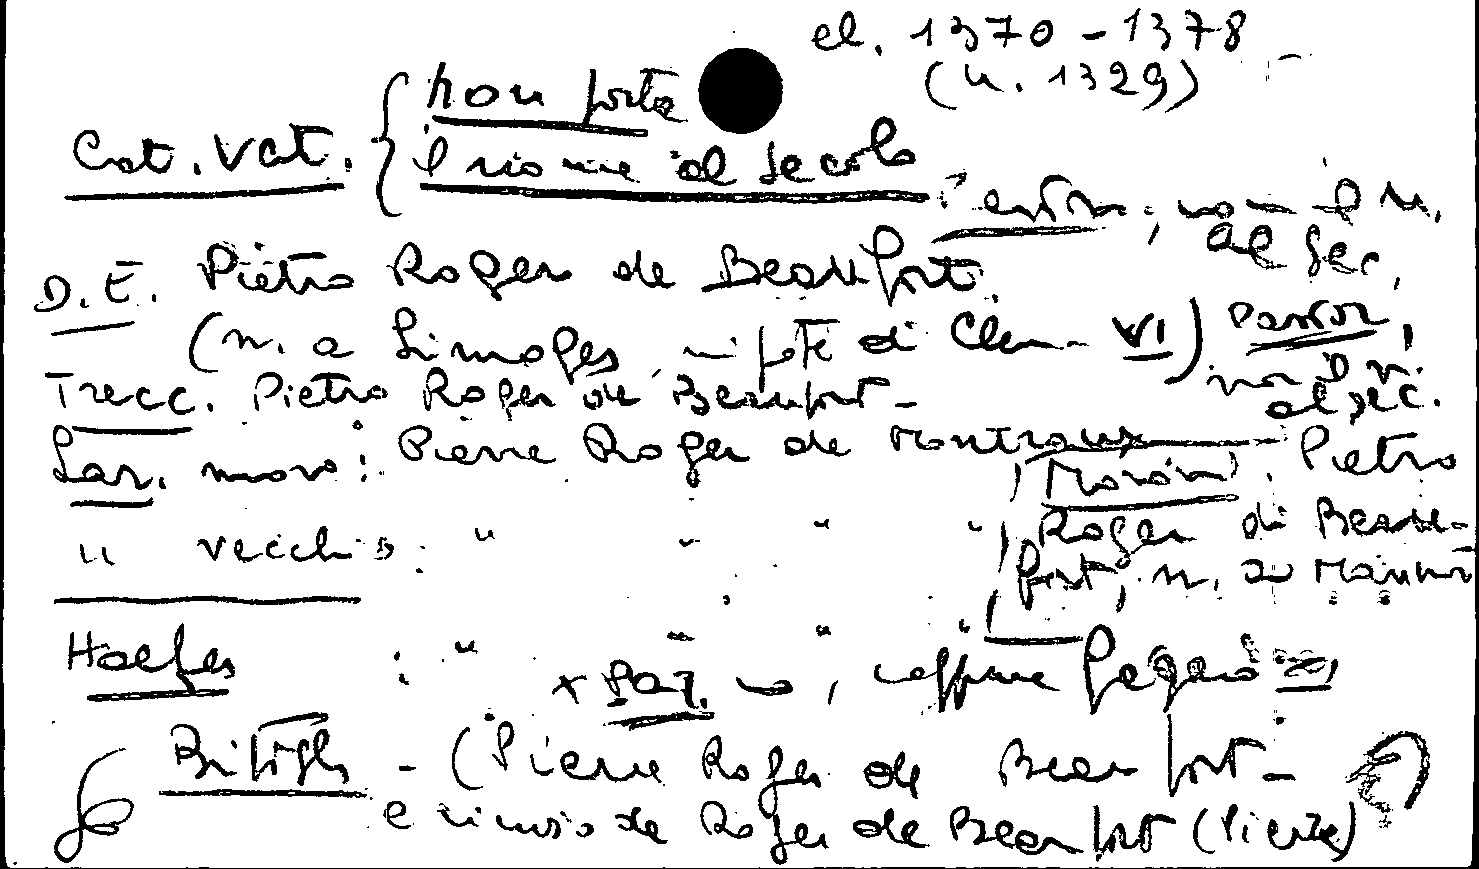 el. 1370-1378
(n. 1329)
Cat. Vat. { non porta
il nome al secolo
; non il n.
al sec.
D.E. Pietro Roger de Beaufort.
(n. a Limoges, nipote di Clem. VI)
Pastor,
non il n.
al sec.
Trecc. Pietro Roger de Beaufort-
Lar. nuovo: Pierre Roger de
Moroni. Pietro
Roger di Beau-
fort, n. a
" vecchio: " " " "
Hoefer : " " " "
x , neppure
British - (Pierre Roger de Beaufort-
e rinvio da Roger de Beaufort (Pierre)